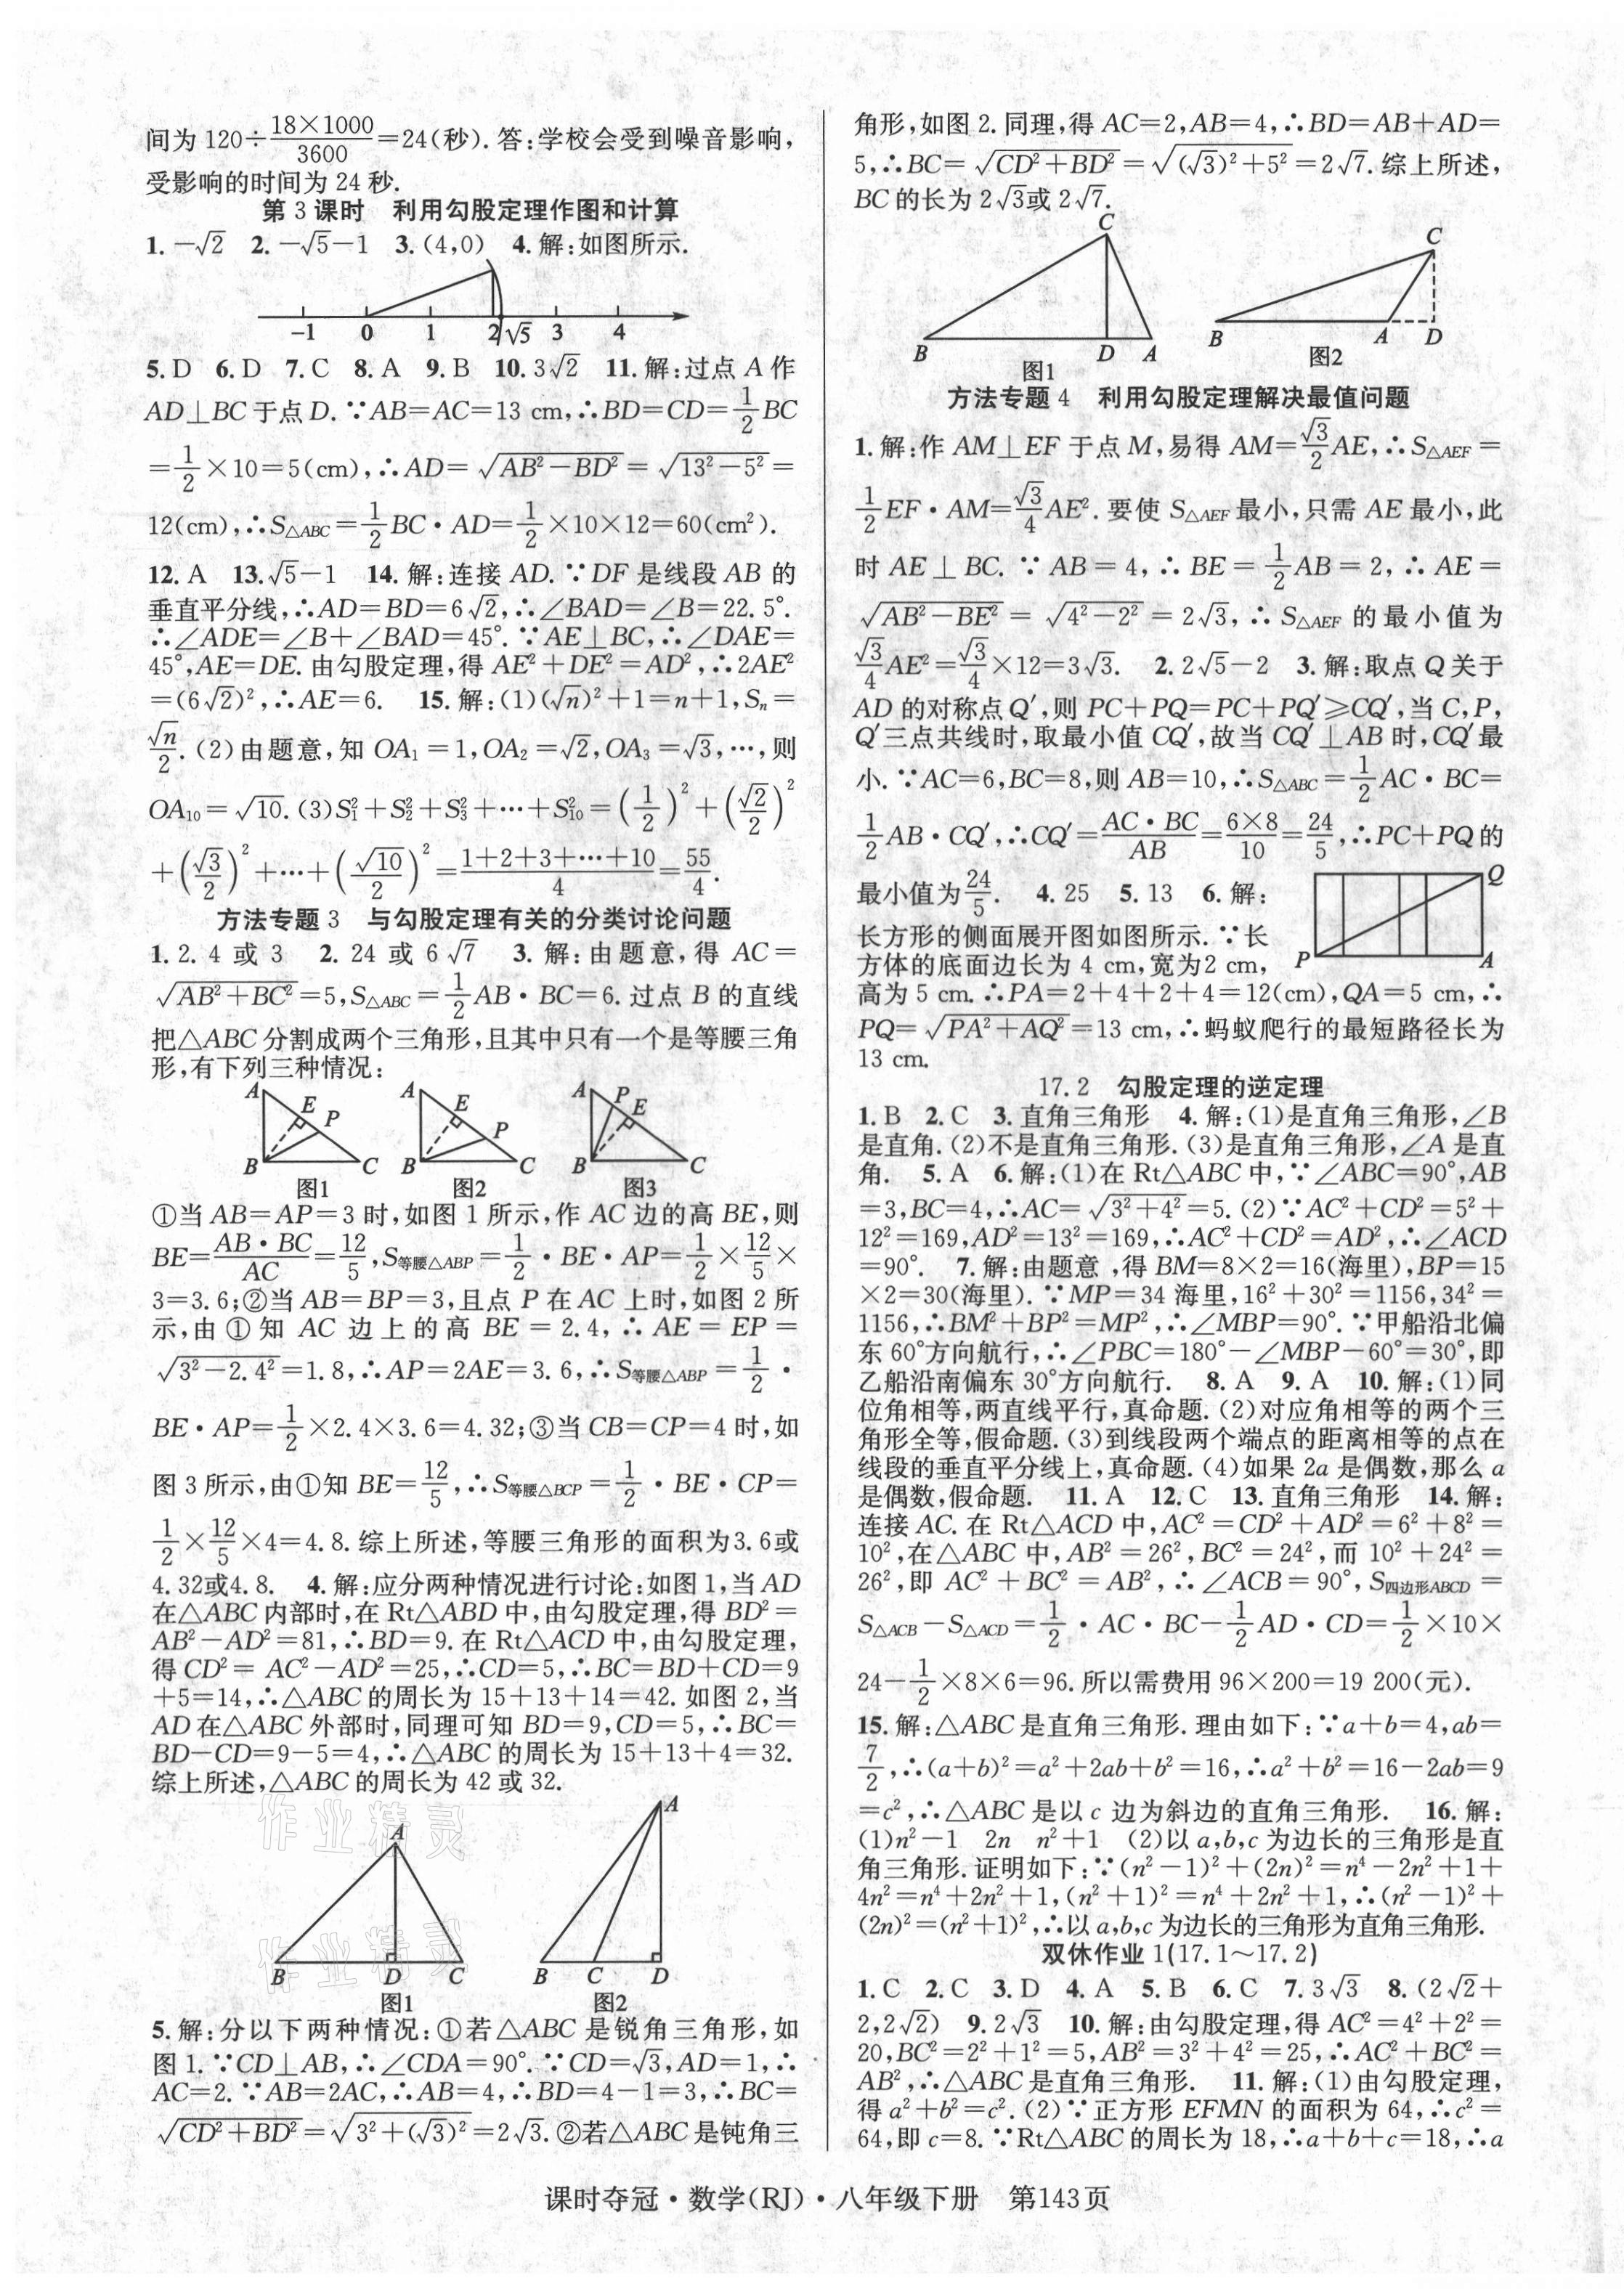 间为 120÷18×1000/3600=24(秒).答:学校会受到噪音影响,
受影响的时间为 24 秒.
第 3 课时　利用勾股定理作图和计算
1. －√2　2. －√5－1　3. (4,0)　4. 解:如图所示.
－1　0　1　2　√5　3　4
5. D　6. D　7. C　8. A　9. B　10. 3√2　11. 解:过点 A 作
AD⊥BC 于点 D. ∵AB=AC=13 cm,∴BD=CD=1/2BC
=1/2×10=5(cm),∴AD=√(AB²－BD²)=√(13²－5²)=
12(cm),∴S△ABC=1/2BC·AD=1/2×10×12=60(cm²).
12. A　13. √5－1　14. 解:连接 AD. ∵DF 是线段 AB 的
垂直平分线,∴AD=BD=6√2,∴∠BAD=∠B=22.5°.
∴∠ADE=∠B+∠BAD=45°. ∵AE⊥BC,∴∠DAE=
45°,AE=DE. 由勾股定理,得 AE²+DE²=AD²,∴2AE²
=(6√2)²,∴AE=6.　15. 解:(1)(√n)²+1=n+1,Sₙ=
√n/2. (2)由题意,知 OA₁=1,OA₂=√2,OA₃=√3,…,则
OA₁₀=√10. (3)S₁²+S₂²+S₃²+…+S₁₀²=(1/2)²+(√2/2)²
+(√3/2)²+…+(√10/2)²=(1+2+3+…+10)/4=55/4.
方法专题 3　与勾股定理有关的分类讨论问题
1. 2.4 或 3　2. 24 或 6√7　3. 解:由题意,得 AC=
√(AB²+BC²)=5,S△ABC=1/2AB·BC=6. 过点 B 的直线
把△ABC 分割成两个三角形,且其中只有一个是等腰三角
形,有下列三种情况:
A　E　P　B　C　A　E　P　B　C　A　P　E　B　C
图1　图2　图3
①当 AB=AP=3 时,如图 1 所示,作 AC 边的高 BE,则
BE=AB·BC/AC=12/5,S等腰△ABP=1/2·BE·AP=1/2×12/5×
3=3.6;②当 AB=BP=3,且点 P 在 AC 上时,如图 2 所
示,由 ① 知 AC 边上的高 BE=2.4,∴AE=EP=
√(3²－2.4²)=1.8,∴AP=2AE=3.6,∴S等腰△ABP=1/2·
BE·AP=1/2×2.4×3.6=4.32;③当 CB=CP=4 时,如
图 3 所示,由①知 BE=12/5,∴S等腰△BCP=1/2·BE·CP=
1/2×12/5×4=4.8. 综上所述,等腰三角形的面积为3.6或
4.32或4.8.　4. 解:应分两种情况进行讨论:如图 1,当 AD
在△ABC 内部时,在 Rt△ABD 中,由勾股定理,得 BD²=
AB²－AD²=81,∴BD=9. 在 Rt△ACD 中,由勾股定理,
得 CD²=AC²－AD²=25,∴CD=5,∴BC=BD+CD=9
+5=14,∴△ABC 的周长为 15+13+14=42. 如图 2,当
AD 在△ABC 外部时,同理可知 BD=9,CD=5,∴BC=
BD－CD=9－5=4,∴△ABC 的周长为 15+13+4=32.
综上所述,△ABC 的周长为 42 或 32.
作业精灵
A　A
作业精灵
B　D　C　B　C　D
图1　图2
5. 解:分以下两种情况:①若△ABC 是锐角三角形,如
图 1. ∵CD⊥AB,∴∠CDA=90°. ∵CD=√3,AD=1,∴
AC=2. ∵AB=2AC,∴AB=4,∴BD=4－1=3,∴BC=
√(CD²+BD²)=√(3²+(√3)²)=2√3. ②若△ABC 是钝角三
角形,如图 2. 同理,得 AC=2,AB=4,∴BD=AB+AD=
5,∴BC=√(CD²+BD²)=√((√3)²+5²)=2√7. 综上所述,
BC 的长为 2√3或 2√7.
C　C
B　D　A　B　A　D
图1　图2
方法专题 4　利用勾股定理解决最值问题
1. 解:作 AM⊥EF 于点 M,易得 AM=√3/2AE,∴S△AEF=
1/2EF·AM=√3/4AE². 要使 S△AEF最小,只需 AE 最小,此
时 AE⊥BC. ∵AB=4,∴BE=1/2AB=2,∴AE=
√(AB²－BE²)=√(4²－2²)=2√3,∴S△AEF 的最小值为
√3/4AE²=√3/4×12=3√3.　2. 2√5－2　3. 解:取点 Q 关于
AD 的对称点 Q′,则 PC+PQ=PC+PQ′≥CQ′,当 C,P,
Q′三点共线时,取最小值 CQ′,故当 CQ′⊥AB 时,CQ′最
小. ∵AC=6,BC=8,则 AB=10,∴S△ABC=1/2AC·BC=
1/2AB·CQ′,∴CQ′=AC·BC/AB=6×8/10=24/5,∴PC+PQ 的
最小值为24/5.　4. 25　5. 13　6. 解:
长方形的侧面展开图如图所示. ∵长
方体的底面边长为 4 cm,宽为2 cm,
Q　P　A
高为 5 cm. ∴PA=2+4+2+4=12(cm),QA=5 cm,∴
PQ=√(PA²+AQ²)=13 cm,∴蚂蚁爬行的最短路径长为
13 cm.
17.2　勾股定理的逆定理
1. B　2. C　3. 直角三角形　4. 解:(1)是直角三角形,∠B
是直角.(2)不是直角三角形.(3)是直角三角形,∠A 是直
角.　5. A　6. 解:(1)在 Rt△ABC 中,∵∠ABC=90°,AB
=3,BC=4,∴AC=√(3²+4²)=5. (2)∵AC²+CD²=5²+
12²=169,AD²=13²=169,∴AC²+CD²=AD²,∴∠ACD
=90°.　7. 解:由题意,得 BM=8×2=16(海里),BP=15
×2=30(海里). ∵MP=34 海里,16²+30²=1156,34²=
1156,∴BM²+BP²=MP²,∴∠MBP=90°. ∵甲船沿北偏
东 60°方向航行,∴∠PBC=180°－∠MBP－60°=30°,即
乙船沿南偏东 30°方向航行.　8. A　9. A　10. 解:(1)同
位角相等,两直线平行,真命题.(2)对应角相等的两个三
角形全等,假命题.(3)到线段两个端点的距离相等的点在
线段的垂直平分线上,真命题.(4)如果 2a 是偶数,那么 a
是偶数,假命题.　11. A　12. C　13. 直角三角形　14. 解:
连接 AC. 在 Rt△ACD 中,AC²=CD²+AD²=6²+8²=
10²,在△ABC 中,AB²=26²,BC²=24²,而 10²+24²=
26²,即 AC²+BC²=AB²,∴∠ACB=90°,S四边形ABCD=
S△ACB－S△ACD=1/2·AC·BC－1/2AD·CD=1/2×10×
24－1/2×8×6=96. 所以需费用 96×200=19 200(元).
15. 解:△ABC 是直角三角形. 理由如下:∵a+b=4,ab=
7/2,∴(a+b)²=a²+2ab+b²=16,∴a²+b²=16－2ab=9
=c²,∴△ABC 是以 c 边为斜边的直角三角形.　16. 解:
(1)n²－1　2n　n²+1　(2)以 a,b,c 为边长的三角形是直
角三角形. 证明如下:∵(n²－1)²+(2n)²=n⁴－2n²+1+
4n²=n⁴+2n²+1,(n²+1)²=n⁴+2n²+1,∴(n²－1)²+
(2n)²=(n²+1)²,∴以 a,b,c 为边长的三角形为直角三角形.
双休作业 1(17.1～17.2)
1. C　2. C　3. D　4. A　5. B　6. C　7. 3√3　8. (2√2+
2,2√2)　9. 2√3　10. 解:由勾股定理,得 AC²=4²+2²=
20,BC²=2²+1²=5,AB²=3²+4²=25,∴AC²+BC²=
AB²,∴△ABC 是直角三角形.　11. 解:(1)由勾股定理,
得 a²+b²=c². (2)∵正方形 EFMN 的面积为 64,∴c²=
64,即 c=8. ∵Rt△ABC 的周长为 18,∴a+b+c=18,∴a
课时夺冠·数学(RJ)·八年级下册　第143页